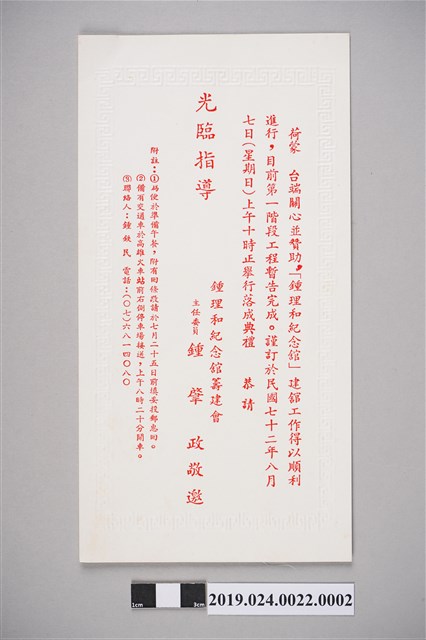 荷蒙　台端關心並贊助，「鍾理和紀念館」建舘工作得以順利
進行，目前第一階段工程暫告完成。謹訂於民國七十二年八月
七日（星期日）上午十時正舉行落成典禮　恭請
光臨指導
鍾理和紀念舘籌建會
主任委員　鍾肇政敬邀
附註：①為便於準備午餐，附有回條敬請於七月二十五日前填妥投郵惠回。
②備有交通車於高雄火車站前右側停車場接送，上午八時二十分開車。
③聯絡人：鍾鉄民　電話：（○七）六八一四○八○
1cm
5cm
2019.024.0022.0002